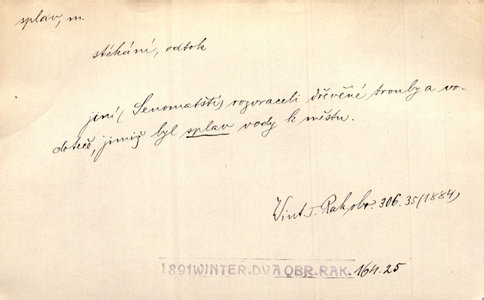 splav, m.
stékání, odtok
jiní (Senomatští) rozvraceli dřevěné trouby a vo-
doteč, jimiž byl splav vody k městu.
Wint. I. Rak. obr. 306. 35 (1884)
1891WINTER.DVA OBR.RAK. 164.25